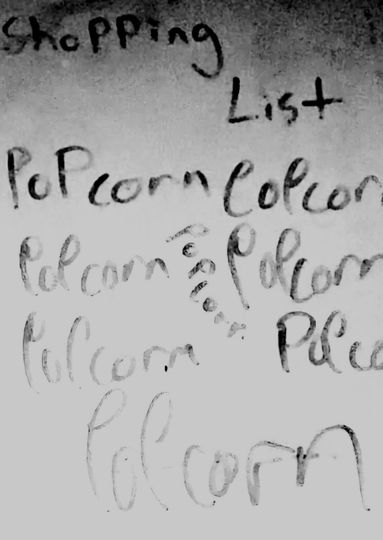 Shopping
List
PoPcorn PoPcor
PoPcorn PoPcorn PoPcorn
PoPcorn PoPco
PoPcorn